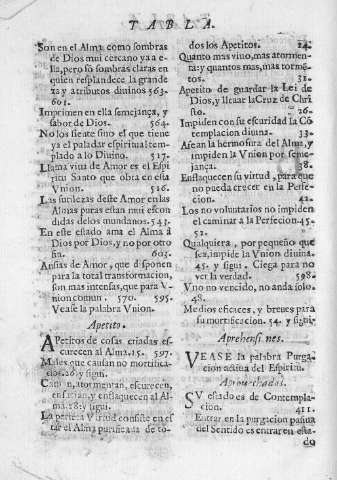 TABLA.
Son en el Alma como sombras
de Dios mui cercano ya a e-
lla, pero só sombras claras en
quien resplandece la grande
za y atributos divinos 563.
601.
Imprimen en ella semejança, y
sabor de Dios. 564.
No los siente sino el que tiene
ya el paladar espiritual tem-
plado a lo Divino. 517.
Llama viva de Amor es el Espi
ritu Santo que obra en esta
Vnion. 516.
Las sutilezas deste Amor en las
Almas puras estan mui escon
didas delos mundanos. 543.
En este estado ama el Alma á
Dios por Dios, y no por otro
fin. 605.
Ansias de Amor, que disponen
para la total transformacion,
son mas intensas, que para V-
nion comun. 570. 595.
Vease la palabra Vnion.
Apetito.
APetitos de cosas criadas es-
curecen al Alma. 15. 597.
Males que causan no mortifica-
dos. 26. y sigui.
Cansan, atormentan, escurecen,
ensucian, y enflaquecen al Al-
ma. 28. y sigui.
La perfeta Virtud consiste en es
tar el Alma purificada de to-
dos los Apetitos. 24.
Quanto mas vivo, mas atormen-
ta: y quantos mas, mas tormé-
tos. 31.
Apetito de guardar la Lei de
Dios, y llevar la Cruz de Chri
sto. 26.
Impiden con su escuridad la Có
templacion divina. 33.
Afean la hermosura del Alma, y
impiden la Vnion por seme-
jança. 38.
Enflaquecen su virtud, para que
no pueda crecer en la Perfe-
cion. 42.
Los no voluntarios no impiden
el caminar a la Perfecion. 45.
52.
Qualquiera, por pequeño que
sea, impide la Vnion divina.
45. y sigui. Ciega para no
ver la verdad. 598.
Vno no vencido, no anda solo.
48.
Medios eficaces, y breves para
su mortificacion. 54. y sigui.
Aprehensiones.
VEASE la palabra Purga-
cion activa del Espiritu.
Aprovechados.
SV estado es de Contempla-
cion. 411.
Entrar en la purgacion pasiva
del Sentido es entrar en esta-
do